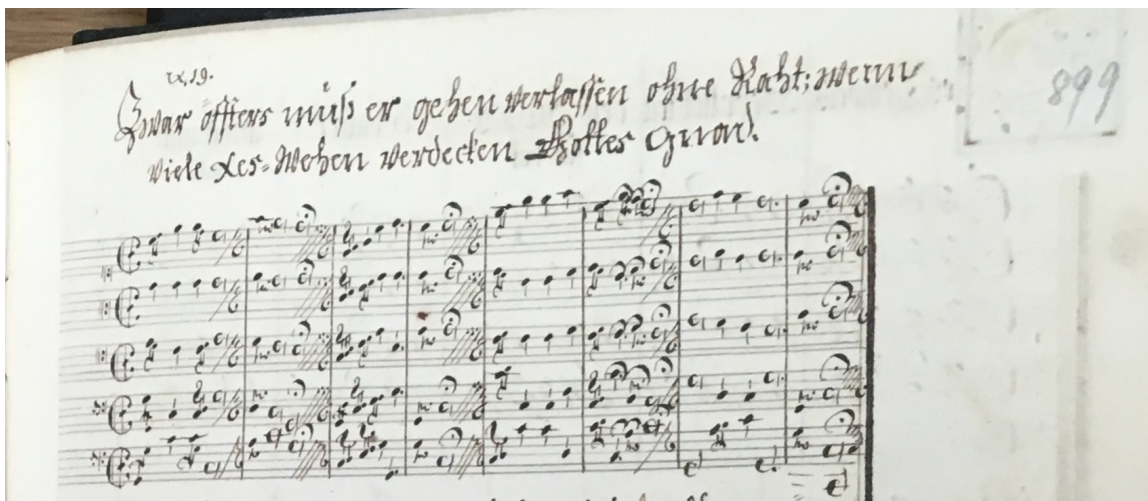 19.
Zwar öffters muß er gehen verlassen ohne Raht; wenn
viele Wehen verdecken Gottes Gnad.
899